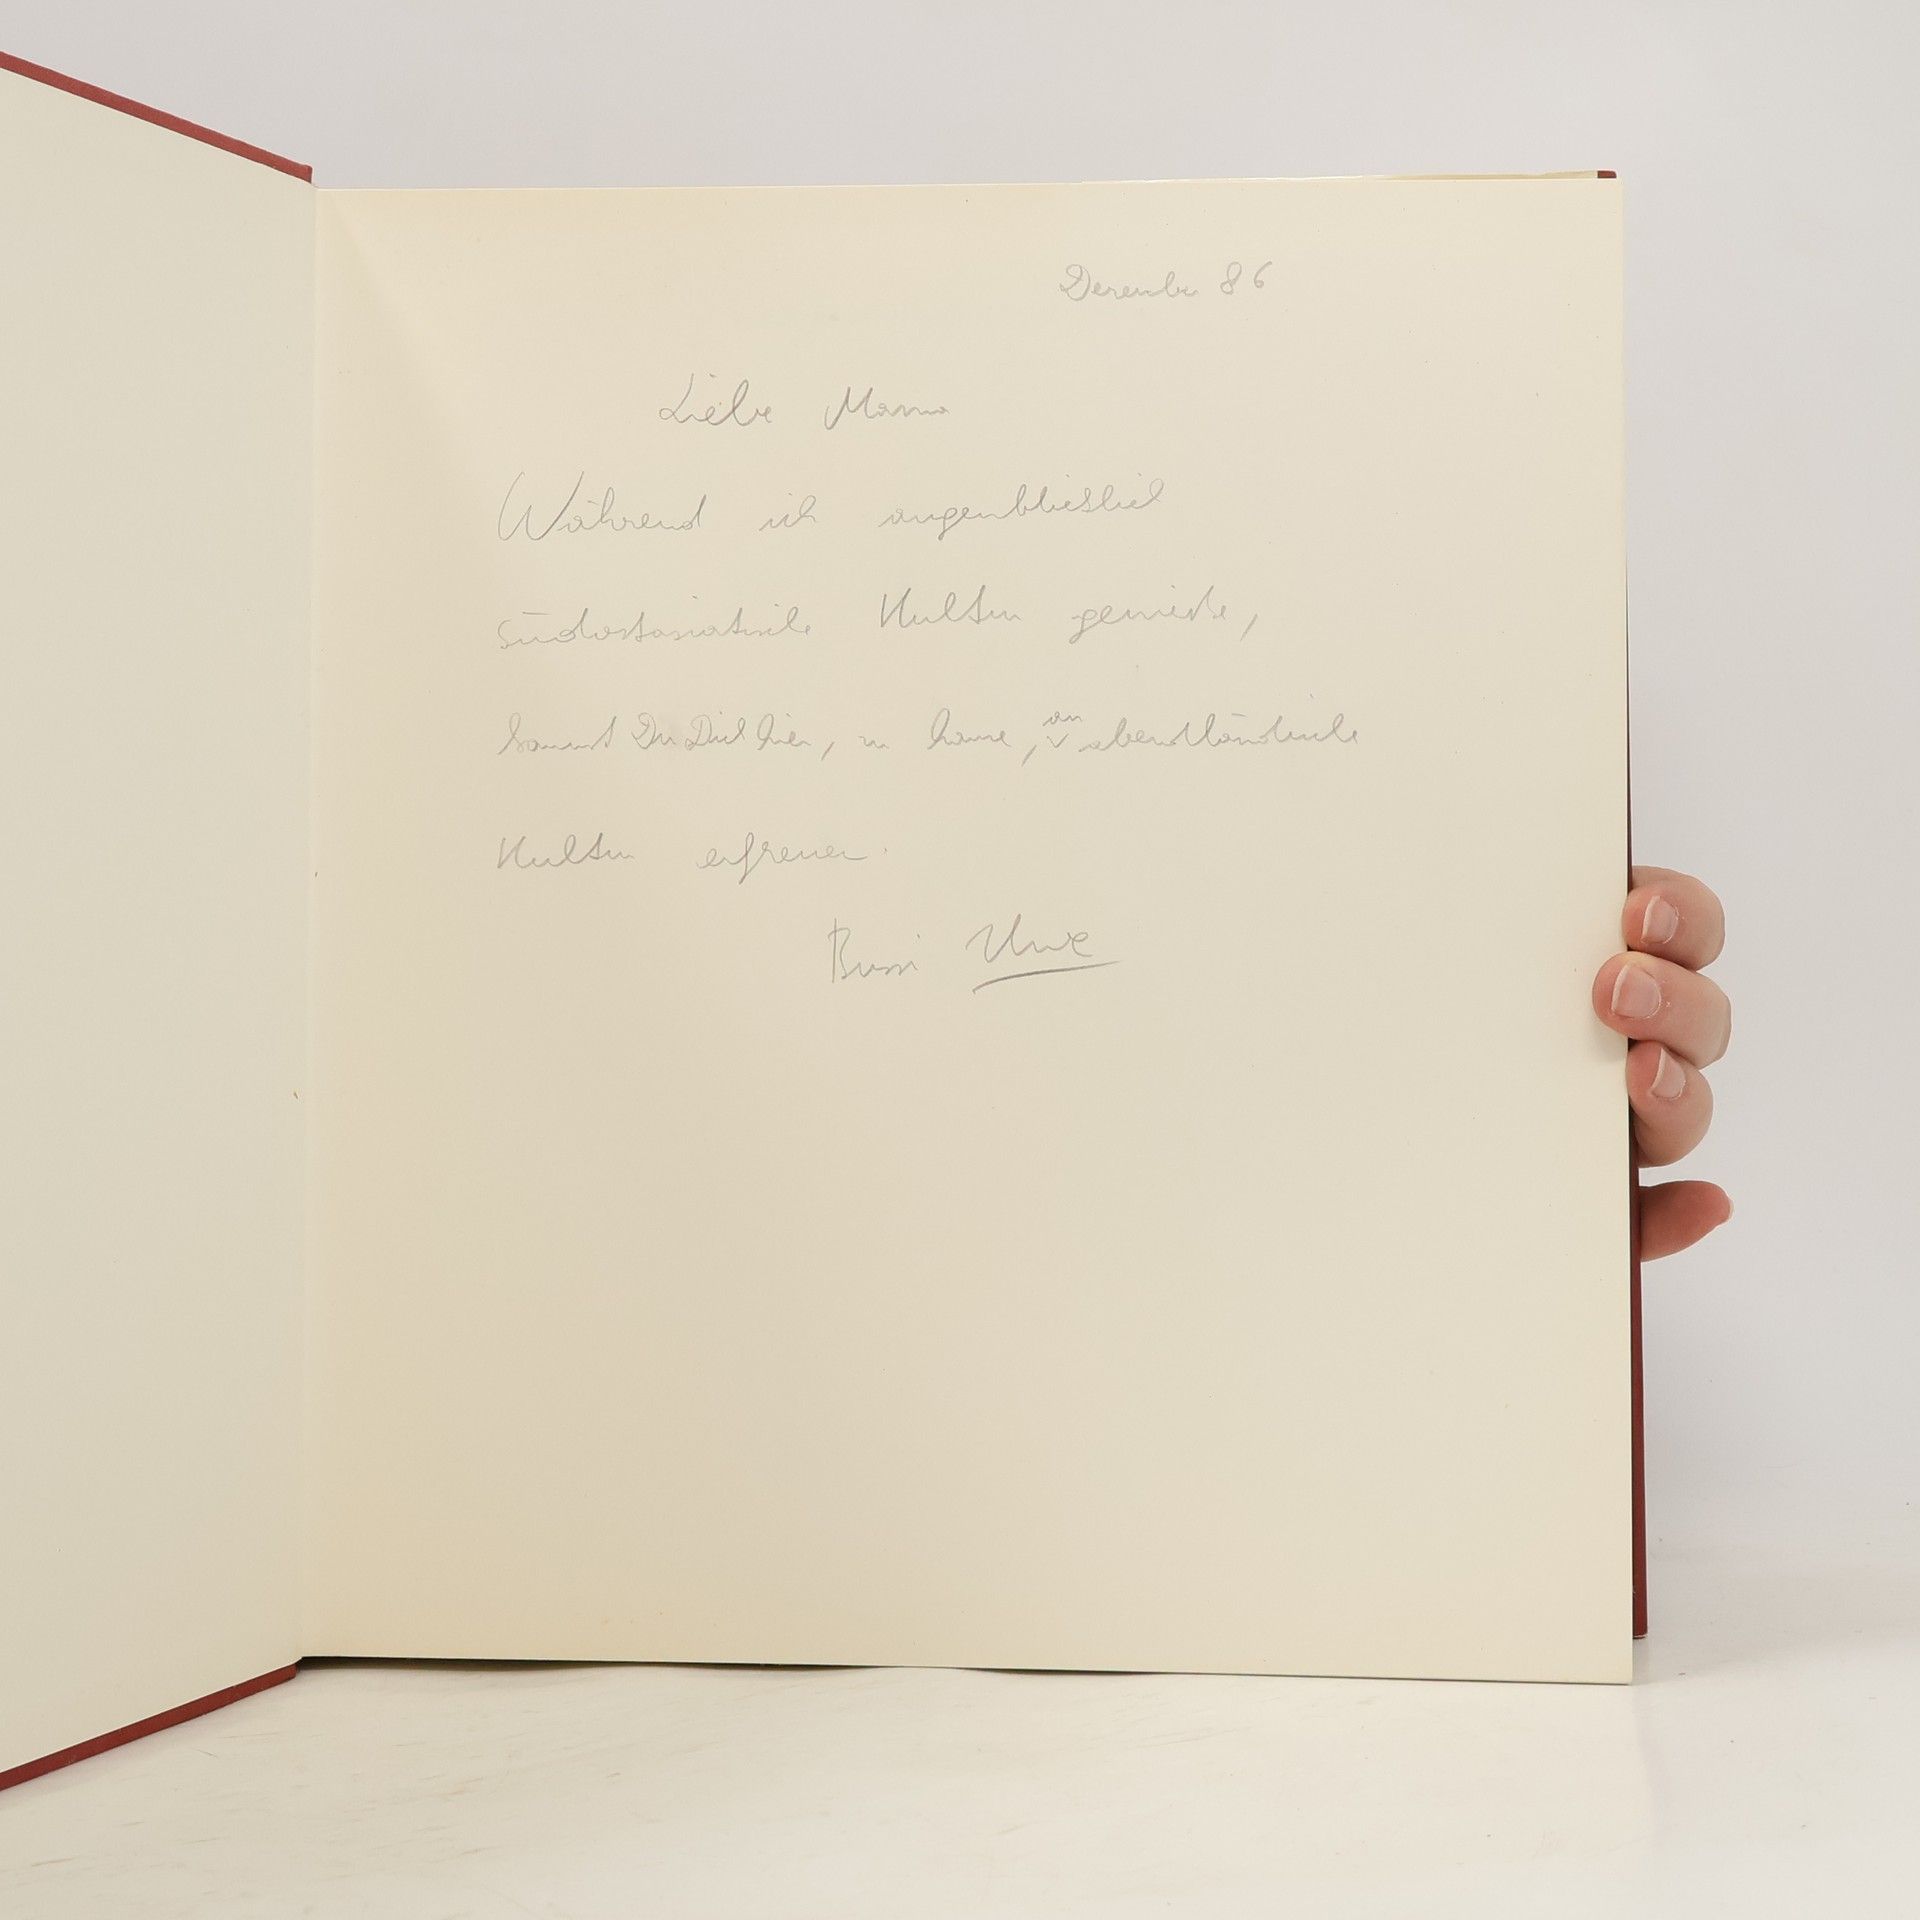 Dezember 86
Liebe Mama
Während ich augenblicklich
südostasiatische Kultur genieße,
kannst Du Dich hier, zu hause, an abendländische
Kultur erfreuen.
Bussi Uwe